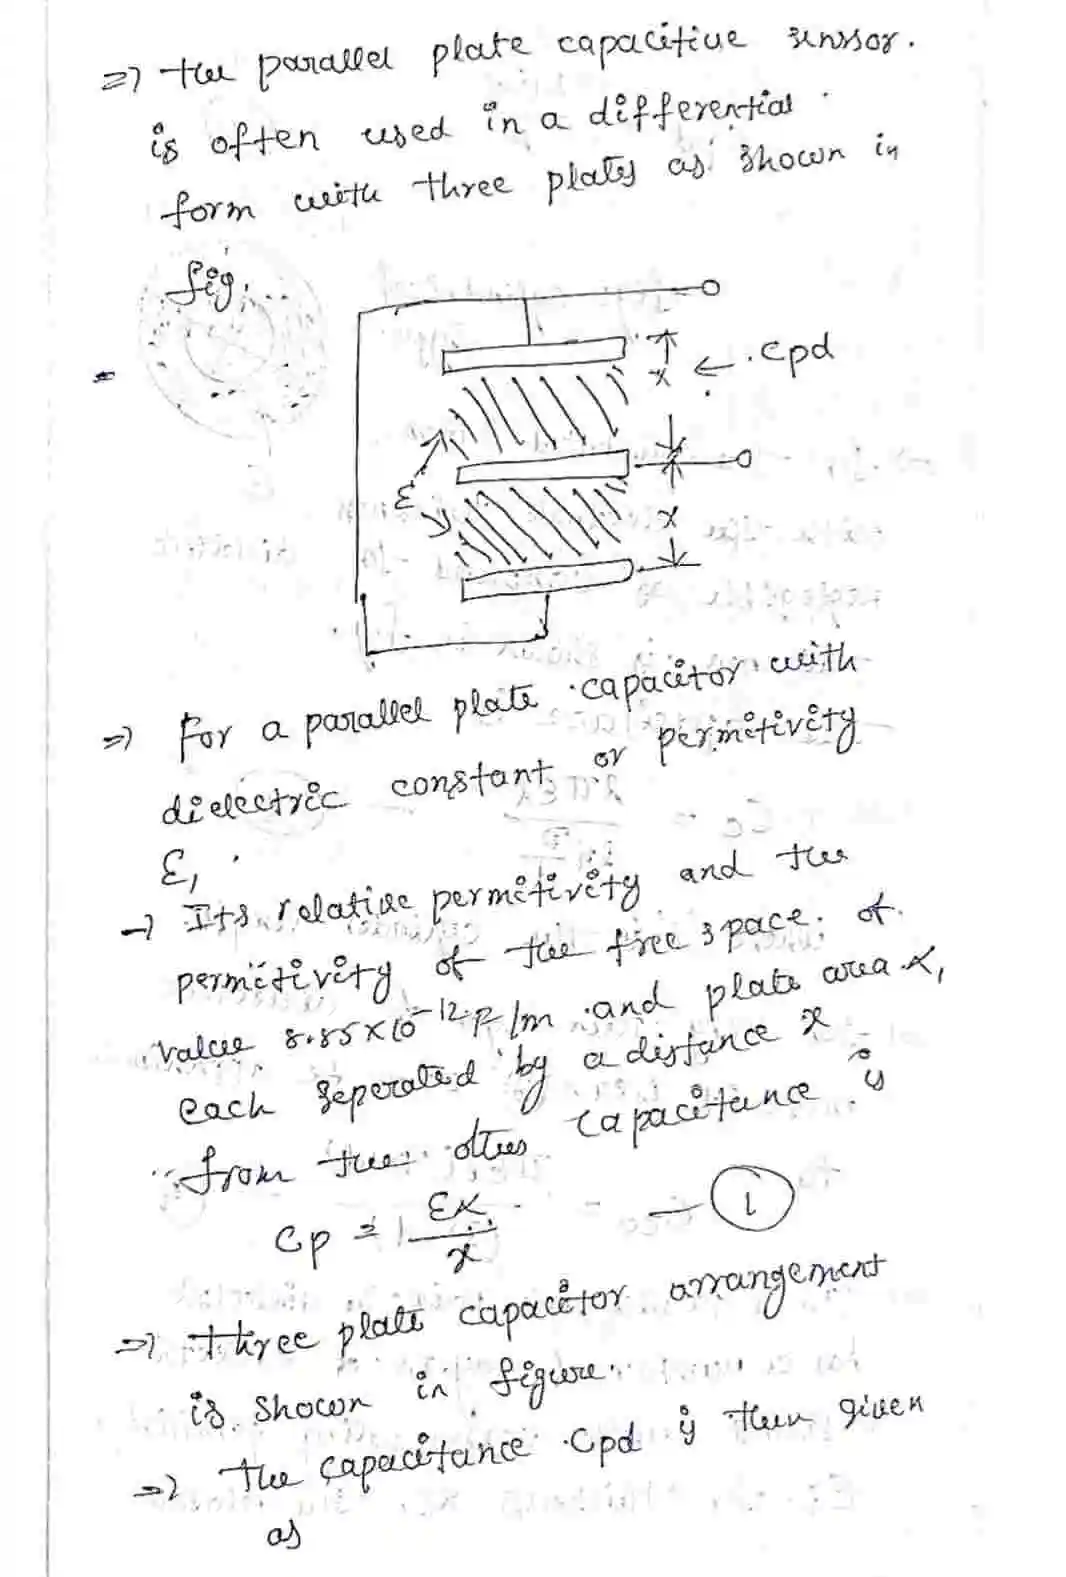 => the parallel plate capacitive sensor.
is often used in a differential
form with three plates as shown in
fig.
x ← .cpd
ε
x
=> For a parallel plate capacitor with
dielectric constant or permitivity
ε,
→ Its relative permitivity and the
permitivity of the free space. of
value 8.85×10-12F/m and plate area α,
each seperated by a distance x
from the other capacitance is
Cp = εα/x — 1
=> three plate capacitor arrangement
is shown in figure.
=> The capacitance Cpd is then given
as